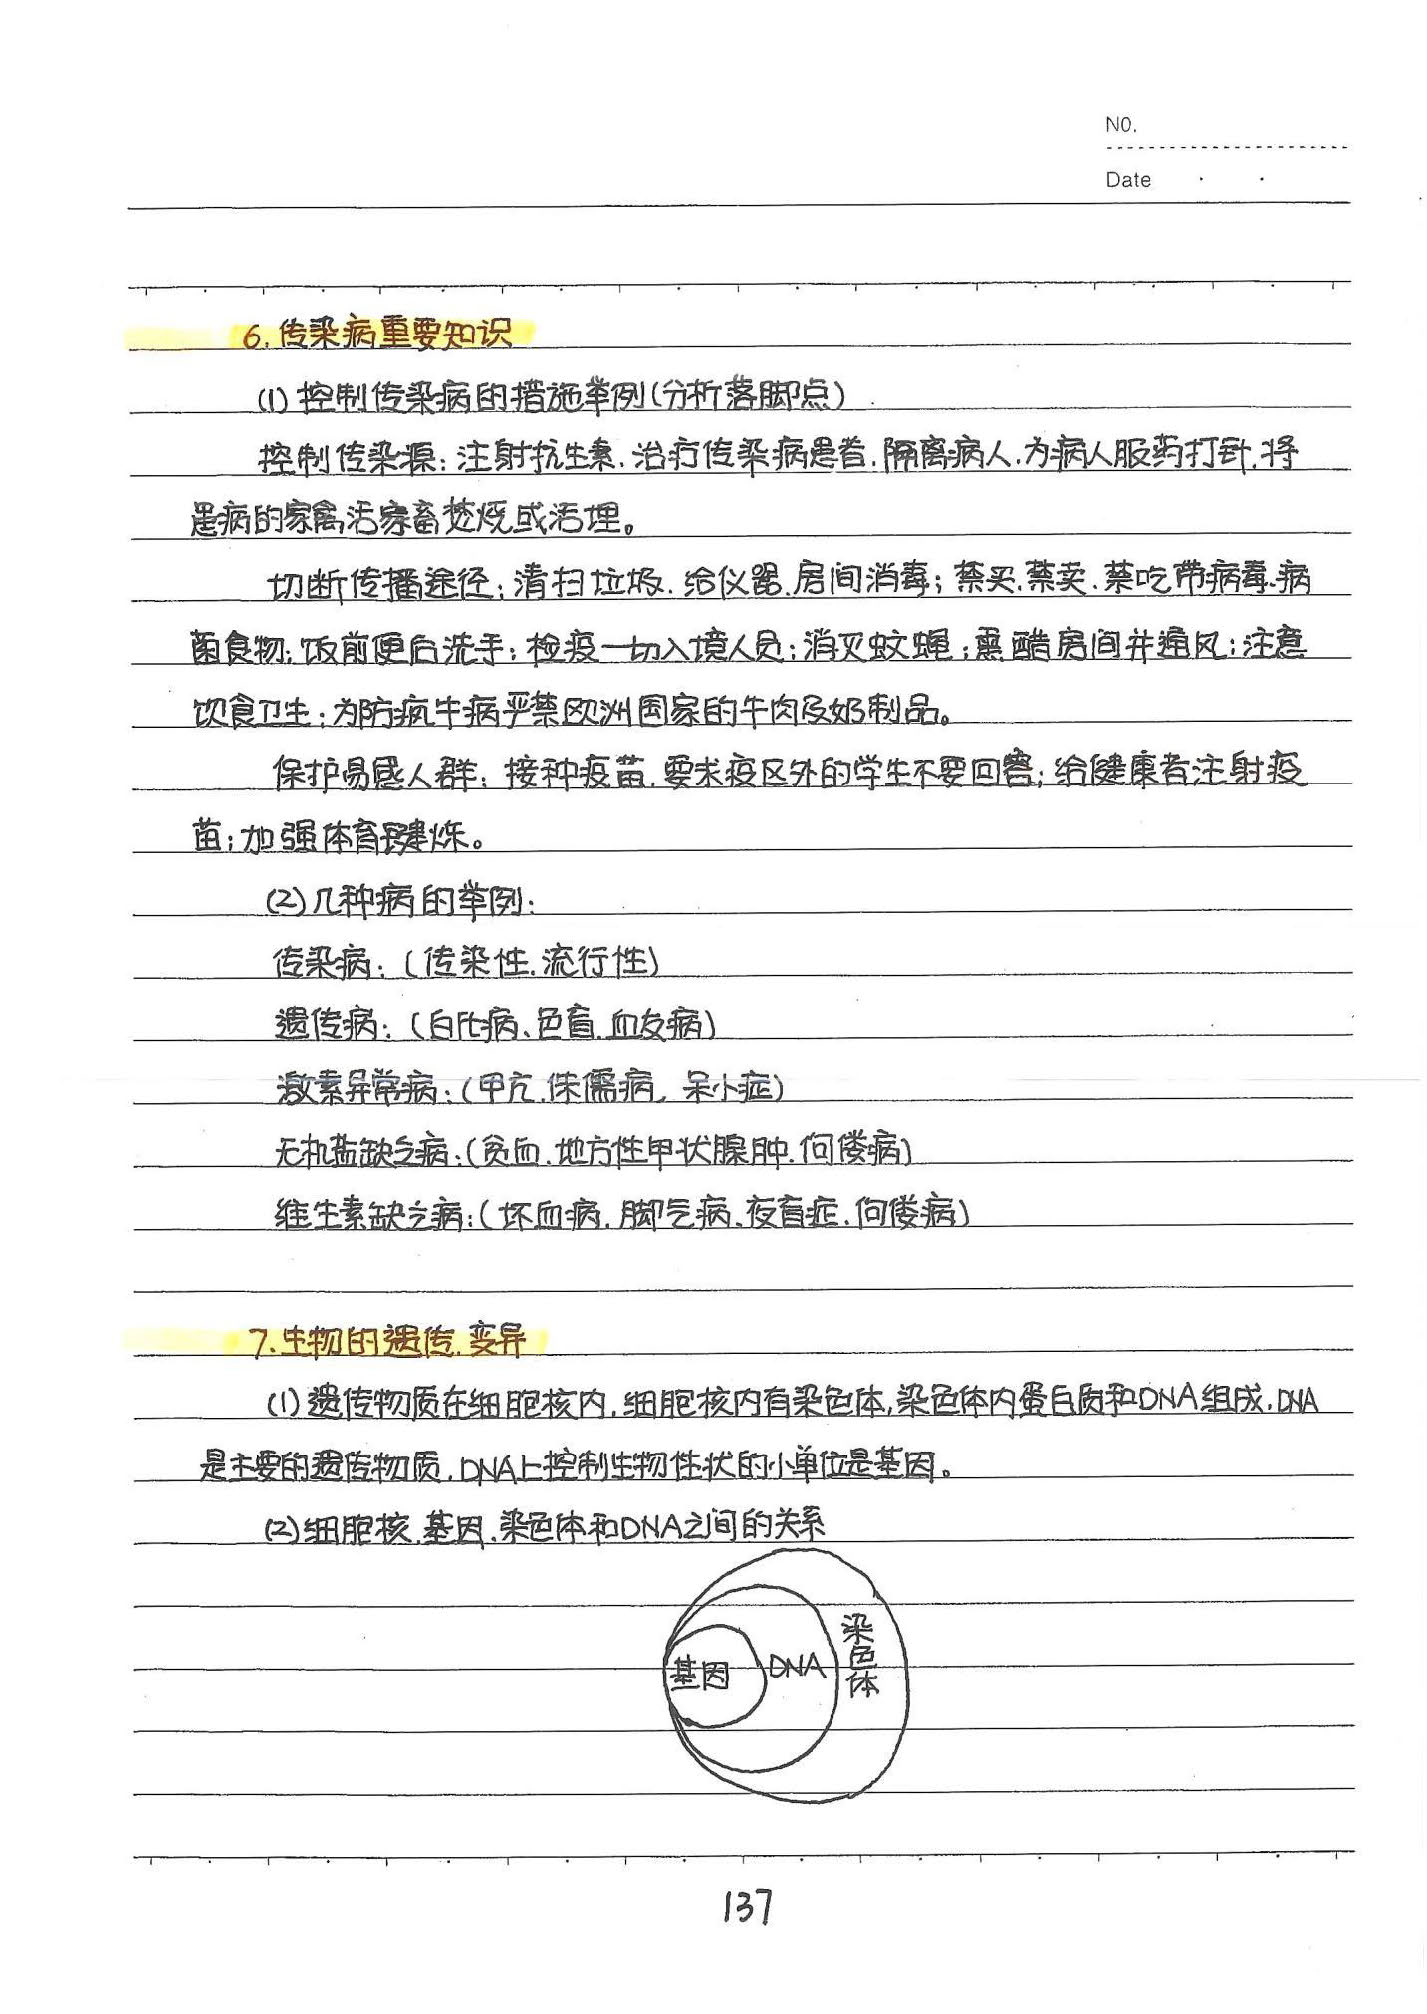 NO.
Date
6.传染病重要知识
(1)控制传染病的措施举例(分析落脚点)
控制传染源:注射抗生素.治疗传染病患者.隔离病人.为病人服药打针.将
患病的家禽活家畜焚烧或活埋。
切断传播途径:清扫垃圾.给仪器.房间消毒;禁买.禁卖.禁吃带病毒.病
菌食物;饭前便后洗手;检疫一切入境人员;消灭蚊蝇;熏醋房间并通风;注意
饮食卫生;为防疯牛病严禁欧洲国家的牛肉及奶制品。
保护易感人群:接种疫苗.要求疫区外的学生不要回答;给健康者注射疫
苗;加强体育锻炼。
(2)几种病的举例:
传染病:(传染性.流行性)
遗传病:(白化病、色盲.血友病)
激素异常病:(甲亢.侏儒病,呆小症)
无机盐缺乏病:(贫血.地方性甲状腺肿.佝偻病)
维生素缺乏病:(坏血病.脚气病、夜盲症.佝偻病)
7.生物的遗传.变异
(1)遗传物质在细胞核内.细胞核内有染色体,染色体内蛋白质和DNA组成.DNA
是主要的遗传物质.DNA上控制生物性状的小单位是基因。
(2)细胞核.基因.染色体和DNA之间的关系
基因
DNA
染色体
137